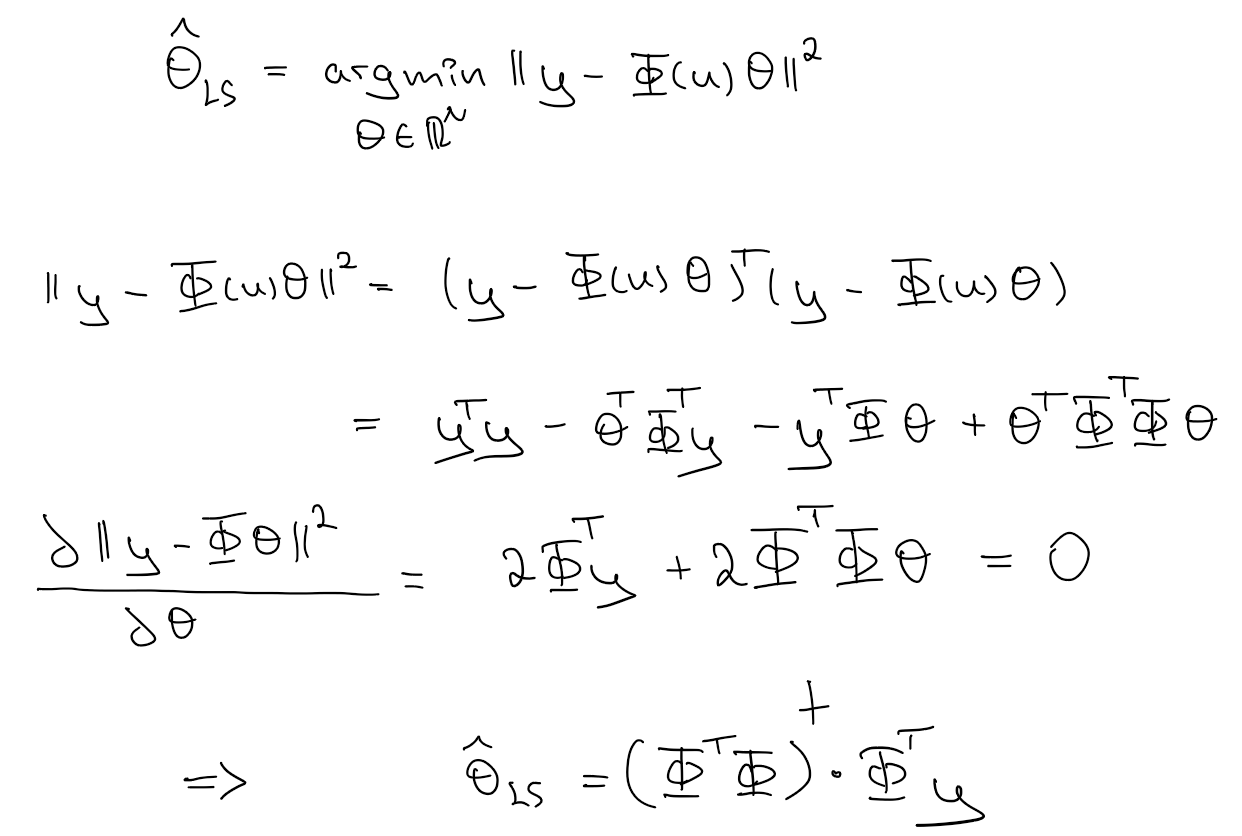 θ̂_LS = argmin ‖y − Φ(u)θ‖²
θ ∈ ℝᴺ
‖y − Φ(u)θ‖² = (y − Φ(u)θ)ᵀ(y − Φ(u)θ)
= yᵀy − θᵀΦᵀy − yᵀΦθ + θᵀΦᵀΦθ
∂‖y − Φθ‖² / ∂θ = 2Φᵀy + 2ΦᵀΦθ = 0
=> θ̂_LS = (ΦᵀΦ)⁺ · Φᵀy